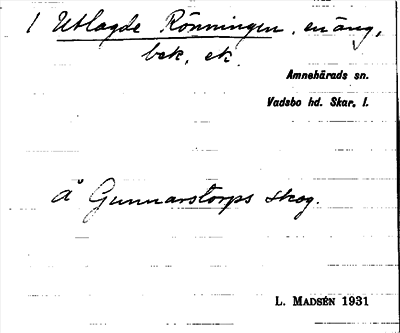 1 Utlagde Rönningen, en äng,
bek, ek.
Amnehärads sn.
Vadsbo hd. Skar. l.
å Gunnarstorps skog.
L. MADSÉN 1931